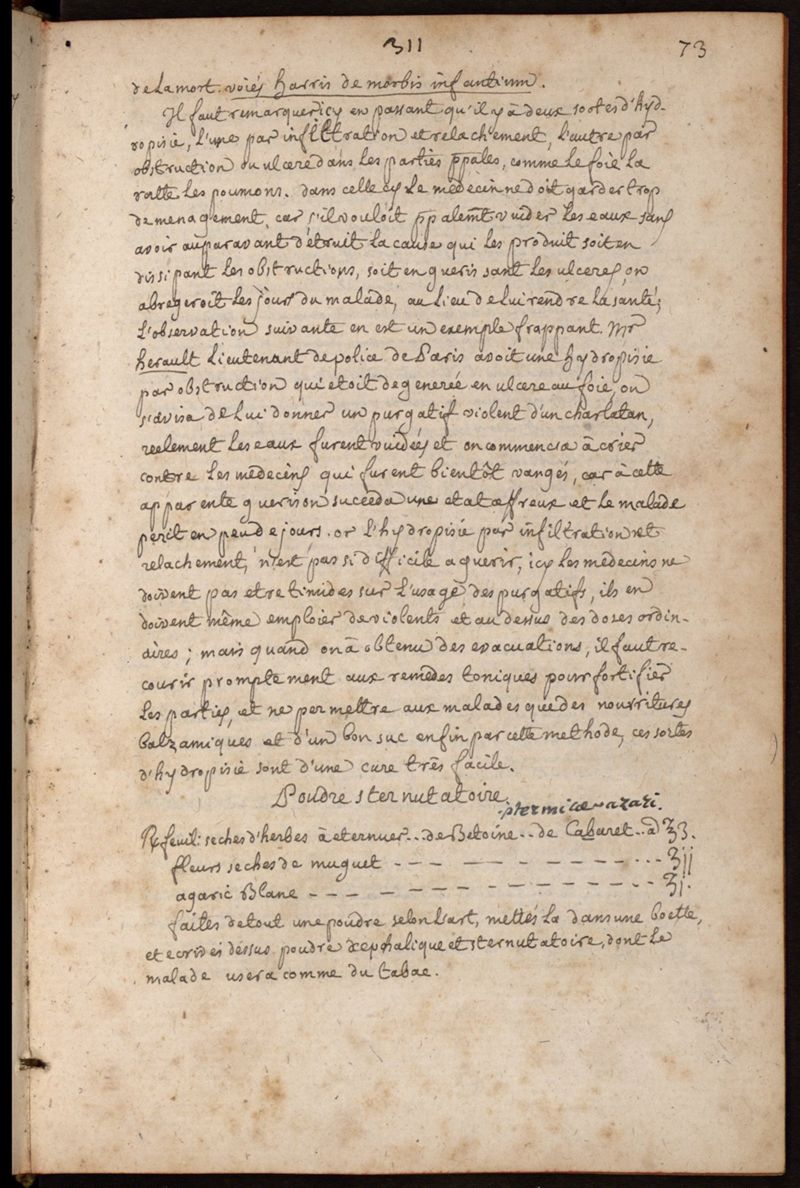 311
73
de la mort. voiés harris de morbis infantium.
Il faut remarquer icy en passant qu'il y à deux sortes d'hyd-
ropisie, l'une par infiltration et relachement, l'autre par
obstruction ou ulcere dans les parties pp̄ales, comme le foie la
ratte les poumons. dans celle cy le medecin ne doit garder trop
de menagement, car s'il vouloit pp̄alem̄t vuider les eaux sans
avoir auparavant d'étruit la cause qui les produit soit en
dissipant les obstructions, soit en guerissant les ulceres, on
abregeroit les jours du malade, au lieu de lui rendre la santé;
l'observation suivante en est un exemple frappant. Mr
herault lieutenant de police de Paris avoit une hydropisie
par obstruction qui etoit degenerée en ulcere au foie, on
s'avisa de lui donner un purgatif violent d'un charlatan,
reelement les eaux furent vuidées et on commenca à crier
contre les medecins qui furent bientôt vangés, car à cette
apparente guerison succeda une etat affreux et le malade
perit en peu de jours. or l'hydropisie par infiltration et
relachement, n'est pas si difficile a guerir, icy les médecins ne
doivent pas etre timides sur l'usage des purgatifs, ils en
doivent même emploier de violents et au dessus des doses ordin-
aires; mais quand on à obtenu des evacuations, il faut re-
courir promptement aux remêdes toniques pour fortifier
les parties, et ne permettre aux malades que des nourritures
balzamiques et d'un bon suc enfin par cette methode, ces sortes
d'hydropisie sont d'une cure três facile.
Poudre sternutatoire
ptermicae asari.
℞ feuil. seches d'herbes à eternuer.. de Betoine.. de Cabaret.. a ʒ3.
fleurs seches de muguet - - - - - - - - - - - - ʒij
agaric Blanc - - - - - - - - - - - - - ʒi.
faites de tout une poudre selon l'art, mettés la dans une boette,
et ecrivés dessus poudre cephalique et sternutatoire, dont le
malade usera comme du tabac.